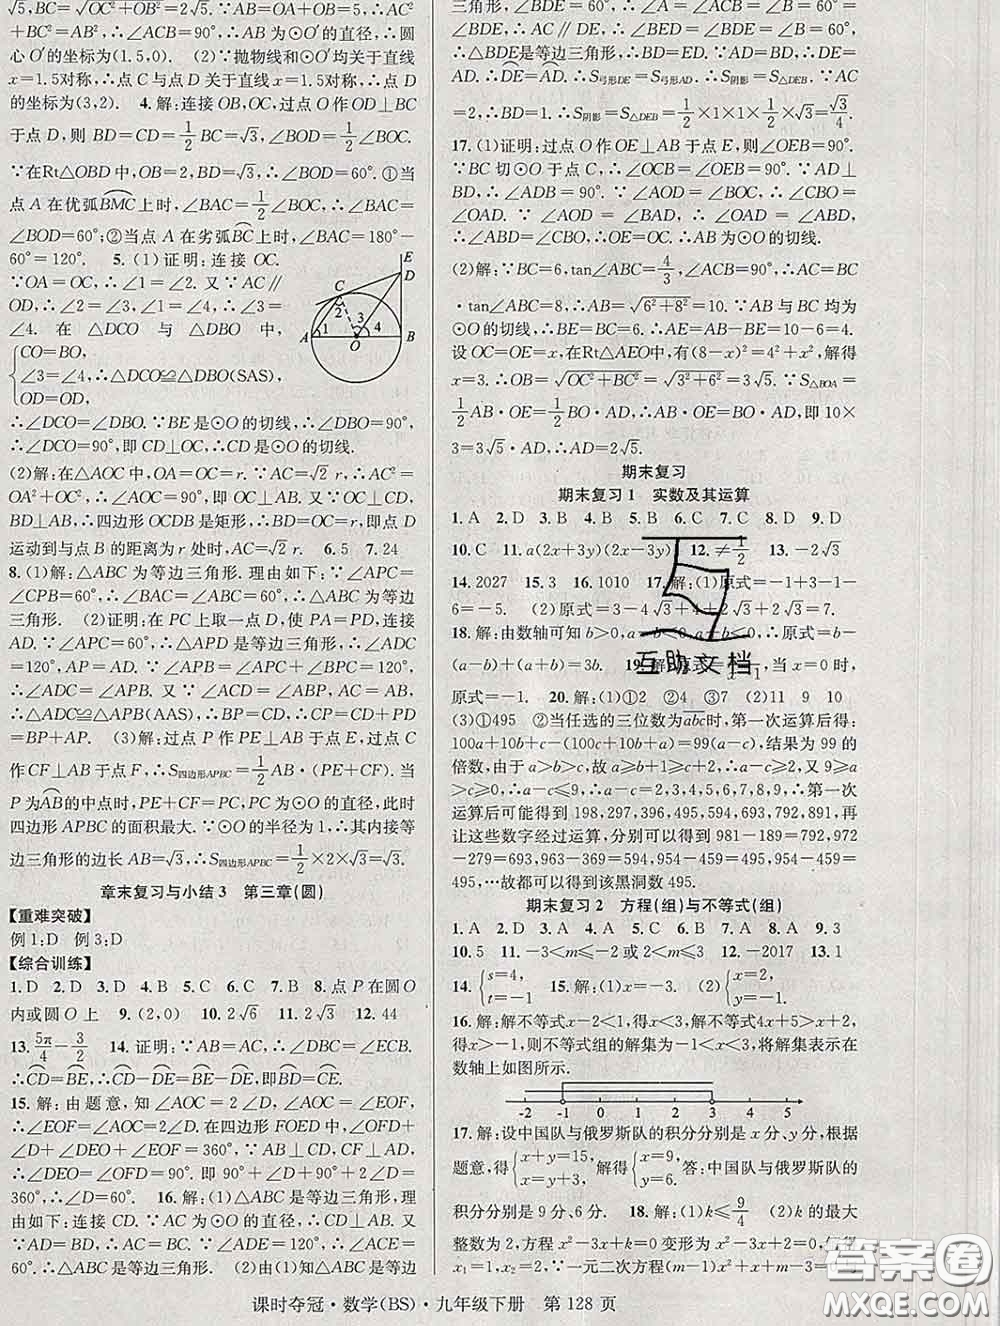 5,BC=√(OC²+OB²)=2√5.∵AB=5,AC=√5,∴AC²+
BC²=AB²,∴∠ACB=90°,∴AB为⊙O′的直径,∴圆
心O′的坐标为(1.5,0). (2)∵抛物线和⊙O′均关于直线
x=1.5对称,∴点C与点D关于直线x=1.5对称,∴点D
的坐标为(3,2). 4.解:连接OB,OC,过点O作OD⊥BC
于点D,则BD=CD=1/2 BC=√3,∠BOD=1/2∠BOC.
∵在Rt△OBD中,OB=2,BD=√3,∴∠BOD=60°.①当
点A在优弧BMC上时,∠BAC=1/2∠BOC,∴∠BAC=
∠BOD=60°;②当点A在劣弧BC上时,∠BAC=180°-
60°=120°. 5.(1)证明:连接OC.
∵OA=OC,∴∠1=∠2.又∵AC∥
OD,∴∠2=∠3,∠1=∠4,∴∠3=
∠4.在△DCO与△DBO中,
{CO=BO,
∠3=∠4,∴△DCO≌△DBO(SAS),
OD=OD,
A B C D E O 1 2 3 4
∴∠DCO=∠DBO.∵BE是⊙O的切线,∴∠DBO=90°,
∴∠DCO=90°,即CD⊥OC,∴CD是⊙O的切线.
(2)解:在△AOC中,OA=OC=r.∵AC=√2 r,∴OC²+
OA²=AC²,∴∠AOC=90°,∴OC⊥AB.又CD⊥OC,
BD⊥AB,∴四边形OCDB是矩形,∴BD=OC=r,即点D
运动到与点B的距离为r处时,AC=√2 r. 6.5 7.24
8.(1)解:△ABC为等边三角形.理由如下:∵∠APC=
∠CPB=60°,∴∠BAC=∠ABC=60°,∴△ABC为等边
三角形. (2)证明:在PC上取一点D,使PA=PD,连接
AD.∵∠APC=60°,∴△APD是等边三角形,∴∠ADC=
120°,AP=AD.∵∠APB=∠APC+∠BPC=120°,
∴∠ADC=∠APB.又∵∠ACD=∠ABP,AC=AB,
∴△ADC≌△APB(AAS),∴BP=CD,∴CP=CD+PD
=BP+AP. (3)解:过点P作PE⊥AB于点E,过点C
作CF⊥AB于点F,∴S四边形APBC=1/2 AB·(PE+CF).当
P为AB的中点时,PE+CF=PC,PC为⊙O的直径,此时
四边形APBC的面积最大.∵⊙O的半径为1,∴其内接等
边三角形的边长AB=√3,∴S四边形APBC=1/2×2×√3=√3.
章末复习与小结3 第三章(圆)
【重难突破】
例1:D 例3:D
【综合训练】
1.D 2.D 3.D 4.B 5.C 6.B 7.B 8.点P在圆O
内或圆O上 9.(2,0) 10.2√6 11.2√3 12.44
13.5π/4-3/2 14.证明:∵AB=AC,∴∠DBC=∠ECB.
∴CD=BE,∴CD-DE=BE-DE,即BD=CE.
15.解:由题意,知∠AOC=2∠D,∠AOC=∠EOF,
∴∠EOF=2∠D.在四边形FOED中,∠OFD+
∠D+∠DEO+∠EOF=360°,∴90°+∠D+90°+2∠D=
360°,∴∠D=60°. 16.解:(1)△ABC是等边三角形,理
由如下:连接CD.∵AC为⊙O的直径,∴AD⊥CD.又
∵AD=BD,∴AC=BC.∵∠ADE=120°,∴∠ACE=
60°,∴△ABC是等边三角形. (2)由(1)知△ABC是等边
三角形,∴∠BDE=60°,∠B=60°,∴∠BDE=
∴△BDE是等边三角形,∴BD=DE.又∵BD=AD,
∴DE=AD.∴S弓形DE=S弓形AD,∴S阴影=S△DEB.∵AC
=2,∴BD=1.∴S阴影=S△DEB=1/2×1×1/2×√3=√3/4.
17.(1)证明:过点O作OE⊥AB于点E,则∠OEB=90°.
∵BC切⊙O于点C,∴∠OCB=∠OEB=90°.∵AD⊥
BD,∴∠D=90°.∵∠AOD=∠BOC,∴∠CBO=
∠OAD.∵∠OAD=∠ABD,∴∠ABD=∠CBO,
∴OE=OC,∴AB为⊙O的切线.
(2)解:∵BC=6,tan∠ABC=4/3,∠ACB=90°,∴AC=BC
·tan∠ABC=8,∴AB=√(6²+8²)=10.∵AB与BC均为
⊙O的切线,∴BE=BC=6.∴AE=AB-BE=10-6=4.
设OC=OE=x,在Rt△AEO中,有(8-x)²=4²+x²,解得
x=3.∴OB=√(OC²+BC²)=√(3²+6²)=3√5.∵S△BOA=
1/2 AB·OE=1/2 OB·AD,∴AB·OE=OB·AD,即10×
3=3√5·AD,∴AD=2√5.
期末复习
期末复习1 实数及其运算
1.A 2.D 3.B 4.B 5.B 6.C 7.C 8.D 9.D
10.C 11.a(2x+3y)(2x-3y) 12.≠1/2 13.-2√3
14.2027 15.3 16.1010 17.解:(1)原式=-1+3-1-
6=-5. (2)原式=3-4√3+4+2√3=7-2√3.
18.解:由数轴可知b>0,a-b<0,a+b<0,∴原式=b-
(a-b)+(a+b)=3b. 19.解:原式=,当x=0时,
原式=-1. 20.解:(1)①2 ②4 ③7 (2)11 9 10
(3)①495 ②当任选的三位数为abc时,第一次运算后得:
100a+10b+c-(100c+10b+a)=99(a-c),结果为99的
倍数,由于a>b>c,故a≥b+1≥c+2,∴a-c≥2,又9≥a
>c≥0,∴a-c≤9,∴a-c=2,3,4,5,6,7,8,9,∴第一次
运算后可能得到198,297,396,495,594,693,792,891,再
让这些数字经过运算,分别可以得到981-189=792,972
-279=693,963-369=594,954-459=495,
…故都可以得到该黑洞数495.
期末复习2 方程(组)与不等式(组)
1.A 2.D 3.D 4.D 5.A 6.C 7.B 8.A 9.3
10.5 11.-3<m≤-2或2<m≤3 12.-2017 13.1
14.{s=4, t=-1 15.解:(1)x=-3. (2){x=2, y=-1.
16.解:解不等式x-2<1,得x<3,解不等式4x+5>x+2,
得x>-1,则不等式组的解集为-1<x<3,将解集表示在
数轴上如图所示.
-2 -1 0 1 2 3 4 5
17.解:设中国队与俄罗斯队的积分分别是x分、y分,根据
题意,得{x+y=15, x=y+3; 解得{x=9, y=6. 答:中国队与俄罗斯队的
积分分别是9分、6分. 18.解:(1)k≤9/4 (2)k的最大
整数为2,方程x²-3x+k=0变形为x²-3x+2=0,解得
x₁=1,x₂=2.∵一元二次方程(m-1)x²+x+m-3=0
课时夺冠·数学(BS)·九年级下册 第128页
互助文档
答案圈
MXQE.COM